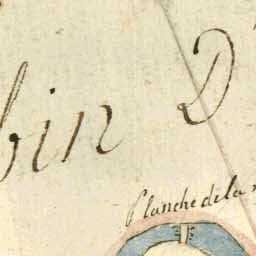 bin D
Planche de la